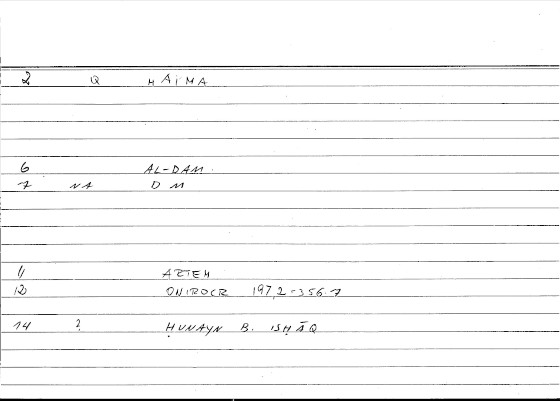 2 Q HAIMA
6 AL-DAM
7 NA DM
11 ARTEM
12 ONIROCR 197,2-356.7
14 ? ḤUNAYN B. ISḤĀQ